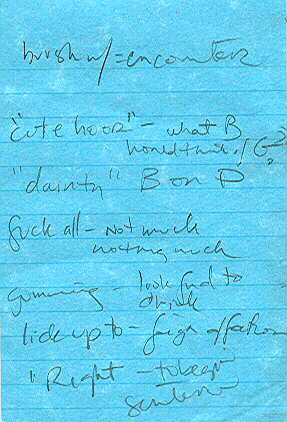 brush w/ = encounter
"cute hoor" - what B
would think of G?
"dainty" B on P
fuck all - not much
nothing much
gumming - look fwd to
drink
lick up to - feign affection
"Right - to begin
sentence